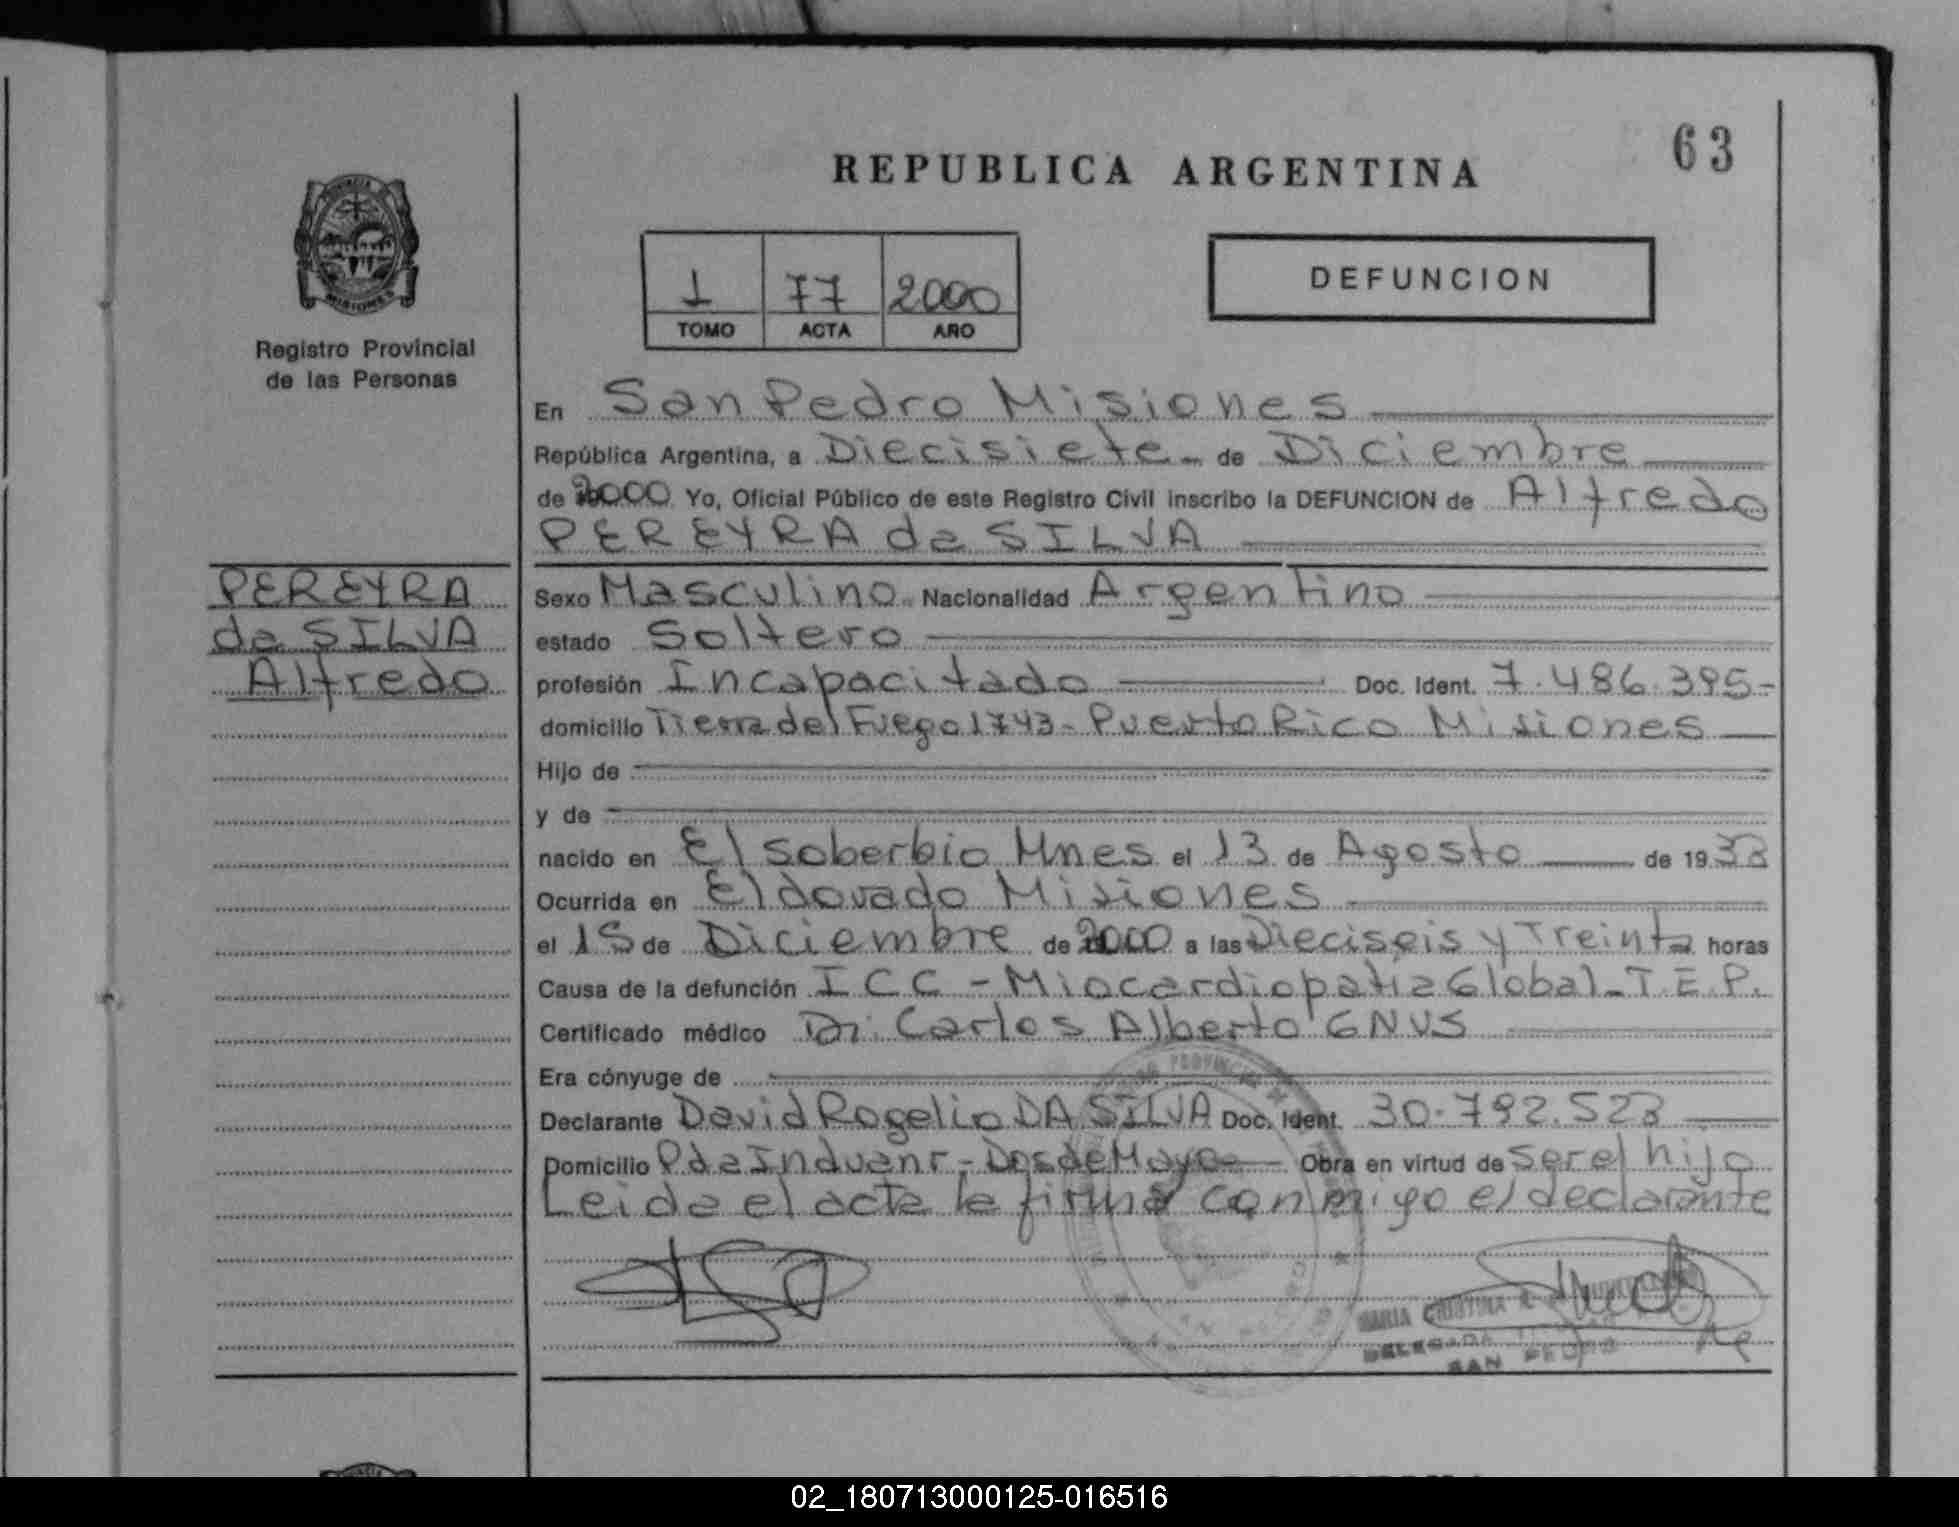 63
REPUBLICA ARGENTINA
DEFUNCION
1 77 2000
TOMO ACTA AÑO
Registro Provincial
de las Personas
En San Pedro Misiones
República Argentina, a Diecisiete de Diciembre
de 2000 Yo, Oficial Público de este Registro Civil inscribo la DEFUNCION de Alfredo
PEREYRA da SILVA
PEREYRA
da SILVA
Alfredo
Sexo Masculino Nacionalidad Argentino
estado Soltero
profesión Incapacitado Doc. Ident. 7.486.395-
domicilio Tierra del Fuego 1743 - Puerto Rico Misiones
Hijo de
y de
nacido en El Soberbio Mnes el 13 de Agosto de 1933
Ocurrida en Eldorado Misiones
el 15 de Diciembre de 2000 a las Dieciseis y Treinta horas
Causa de la defunción ICC - Miocardiopatia Global - T.E.P.
Certificado médico Dr. Carlos Alberto GNUS
Era cónyuge de
Declarante David Rogelio DA SILVA Doc. Ident. 30.792.523
Domicilio Pda - Dos de Mayo Obra en virtud de ser el hijo
Leida el acta la firma conmigo el declarante
MARIA CRISTINA
DELEGADA
SAN PEDRO
02_180713000125-016516